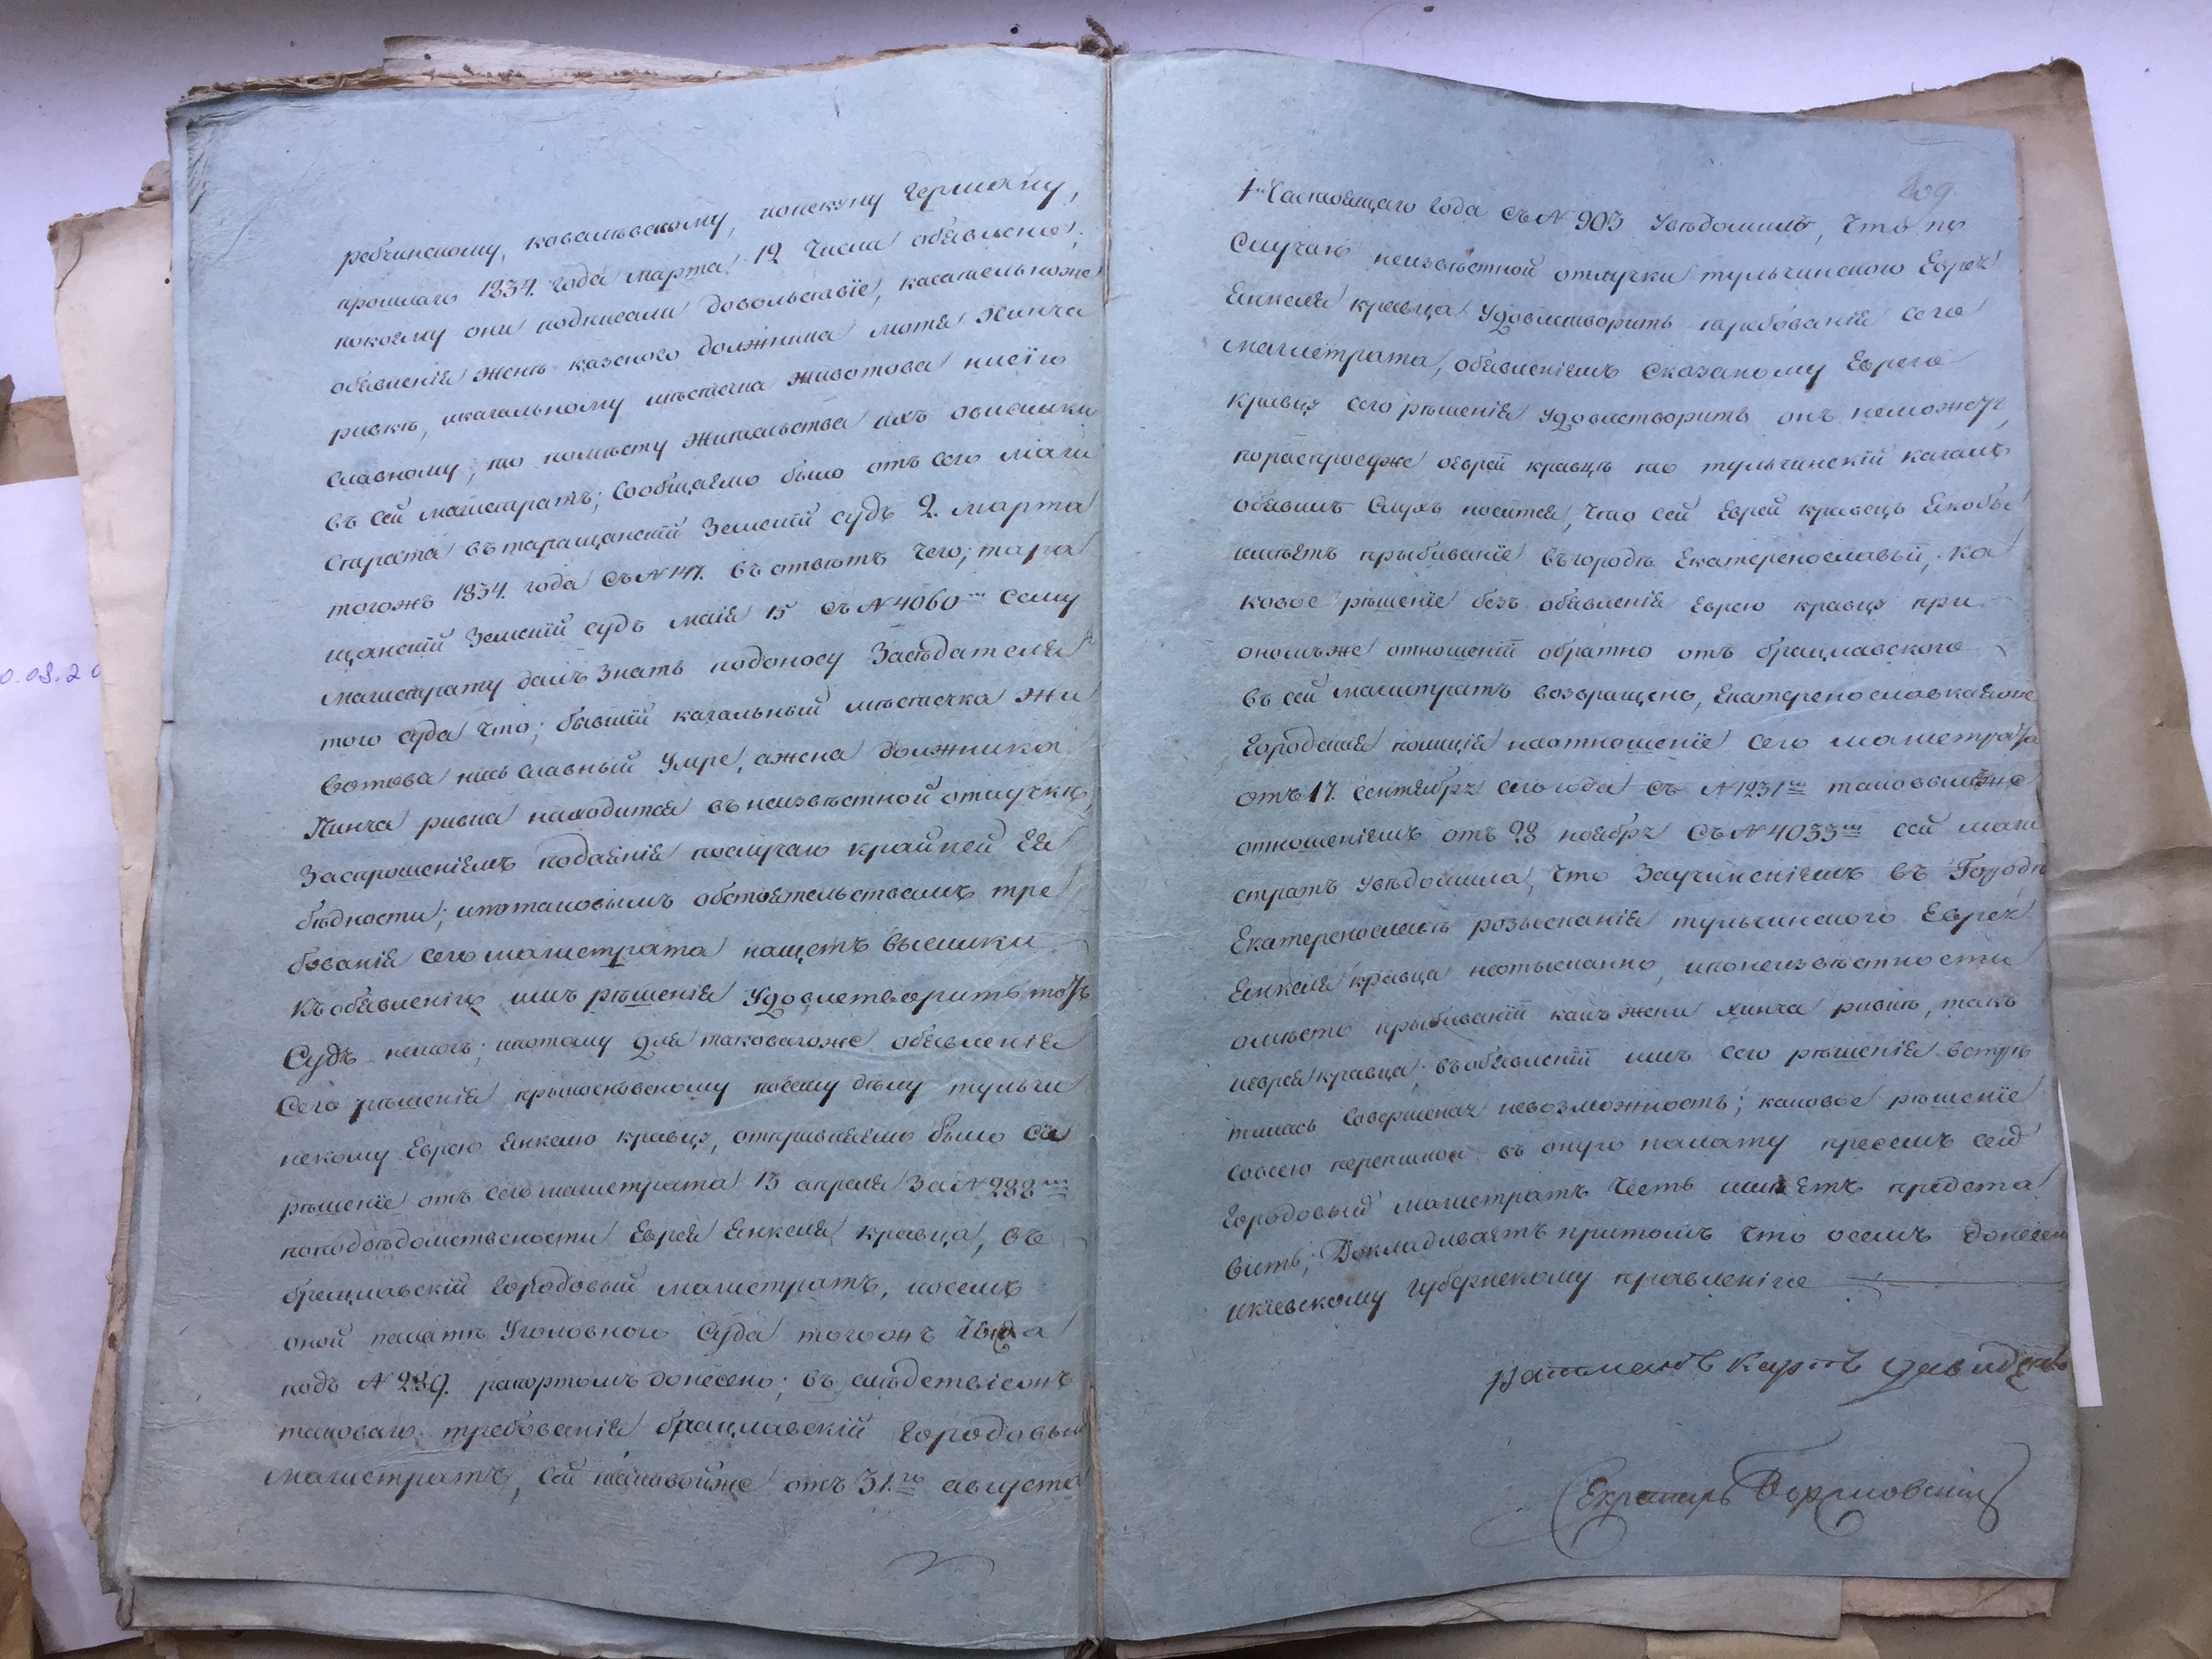 ребчинскому, ковальвскому, попекуну Герману,
прошлаго 1834. года марта 12 числа обявлено,
покоему они подписали довольствіе, касательноже
обявленія женѣ казеного должника мотя Хинча
ривкѣ, икагальному мѣстечка животова нисѣю
славному, то помѣсту жительства ихъ овысылки
въ сей магистратъ; Сообщаемо было отъ сего маги
страта вътаращанскій Земскій судъ 2. марта
тогожъ 1834. года съ № 147. въ отвѣтъ чего; тара
щанскій Земскій судъ маія 15 съ № 4060м сему
магистрату далъ знать подоносу Засѣдателя
того суда что; бывшій кагальный мѣстечка жи
вотова нись славный умре, ажена должника
Хинча ривка находится въ неизвѣстной отлучкѣ,
Заспрошеніемъ подаянія послучаю крайней Ея
бѣдности; ипотаковымъ обстоятельствамъ тре
бованія сего магистрата нащетъ высылки
къ обявленію имъ рѣшенія удовлетворить тотъ
Судъ немогъ; ипотому для таковагоже обявленія
Сего рѣшенія прыкосновеному посему дѣлу тульчи
нскому Еврею Енкелю кравцу, отправляемо было сіе
рѣшеніе отъ сего магистрата 13 апреля За № 288м
поподвѣдомствености Еврея Енкеля кравца, въ
брацлавскій Городовый магистратъ, посемъ
оной палатѣ Уголовного Суда тогожъ числа
подъ № 289. рапортомъ донесено; въ слѣдствіе онъ
таковаго требованія брацлавскій Городовый
магистратъ, сей таковойже отъ 31.го августа
209.
Настоящаго Года съ № 903 увѣдомилъ, что по
Случаю неизвѣстной отлучки тульчинского Еврея
Енкеля кравца удовлетворить требованія сего
магистрата, обявленіемъ сказаному Еврею
кравцу сего рѣшенія удовлетворить онъ неможетъ,
пораспросуже оеврей кравцѣ то тульчинскій кагалъ
обявилъ слухъ носится, что сей Еврей кравецъ якобы
имѣетъ прыбиваніе въ городѣ Екатеренославьи, ка
ковое рѣшеніе безъ обявленія Еврею кравцу при
ономъже отношеній обратно отъ брацлавского
въ сей магистратъ возвращено, Екатеренославкаяже
Городская полиція наотношеніе сего магистрата
отъ 17. сентября сего года съ № 1231м таковымже
отношеніемъ отъ 28 ноября съ № 4033м сей маги
стратъ увѣдомила, что Заучиненіемъ въ Городѣ
Екатеренославѣ розысканія тульчинского Еврея
Енкеля кравца неотыскано, ипонеизвѣстности
омѣсто прыбиваній какъ жени хинча ривки, такъ
иеврея кравца, въ обявленій имъ сего рѣшенія встрѣ
тилась Совершеная невозможность; каковое рѣшеніе
совсею перепискою въ оную палату пресемъ сей
Городовый магистратъ честь имѣетъ предста
вить; Докладиваетъ притомъ что осемъ донесено
икіевскому Губернскому правленію
Ратманъ Карпъ Давиденко
Секретарь